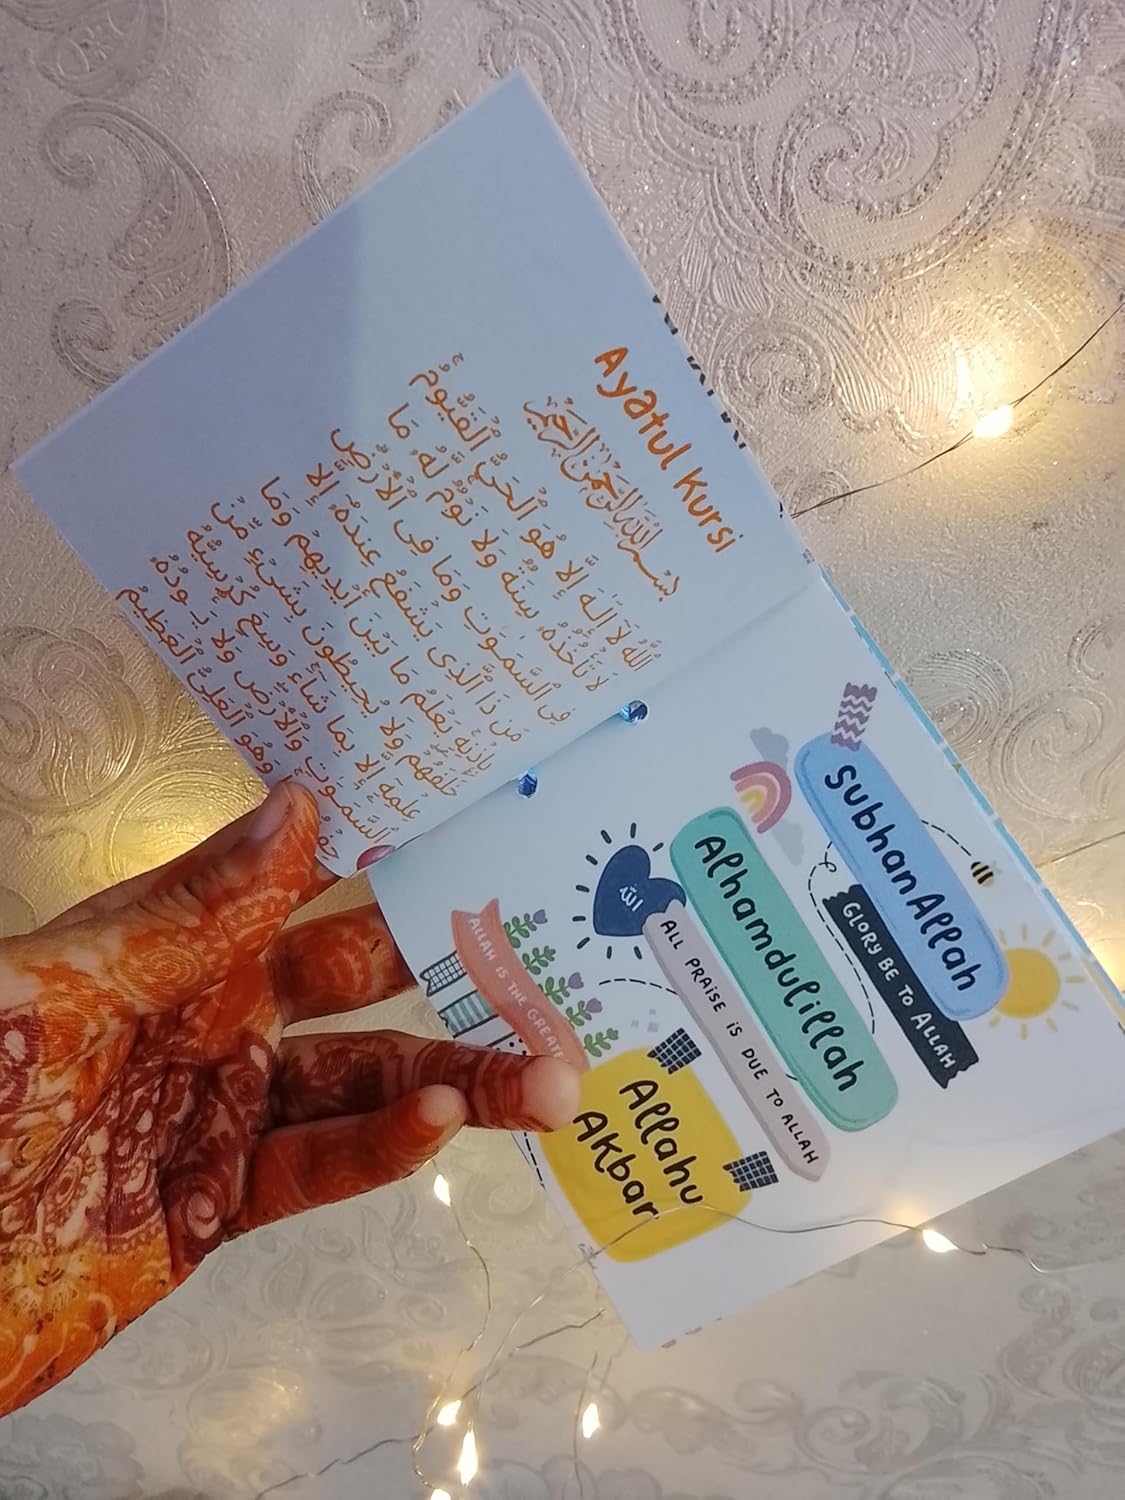 Ayatul Kursi
بِسْمِ اللهِ الرَّحْمٰنِ الرَّحِيْمِ
اللّٰهُ لَآ إِلٰهَ إِلَّا هُوَ الْحَيُّ الْقَيُّوْمُ
لَا تَأْخُذُهُ سِنَةٌ وَلَا نَوْمٌ لَهُ مَا
فِى السَّمٰوٰتِ وَمَا فِى الْأَرْضِ
مَن ذَا الَّذِى يَشْفَعُ عِندَهُ إِلَّا
بِإِذْنِهِ يَعْلَمُ مَا بَيْنَ أَيْدِيهِمْ وَمَا
خَلْفَهُمْ وَلَا يُحِيطُونَ بِشَىْءٍ مِّنْ
عِلْمِهِ إِلَّا بِمَا شَآءَ وَسِعَ كُرْسِيُّهُ
السَّمٰوٰتِ وَالْأَرْضَ وَلَا يَـُٔودُهُ
وَهُوَ الْعَلِىُّ الْعَظِيمُ
SubhanAllah
GLORY BE TO ALLAH
Alhamdulillah
الله
ALL PRAISE IS DUE TO ALLAH
Allahu
Akbar
ALLAH IS THE